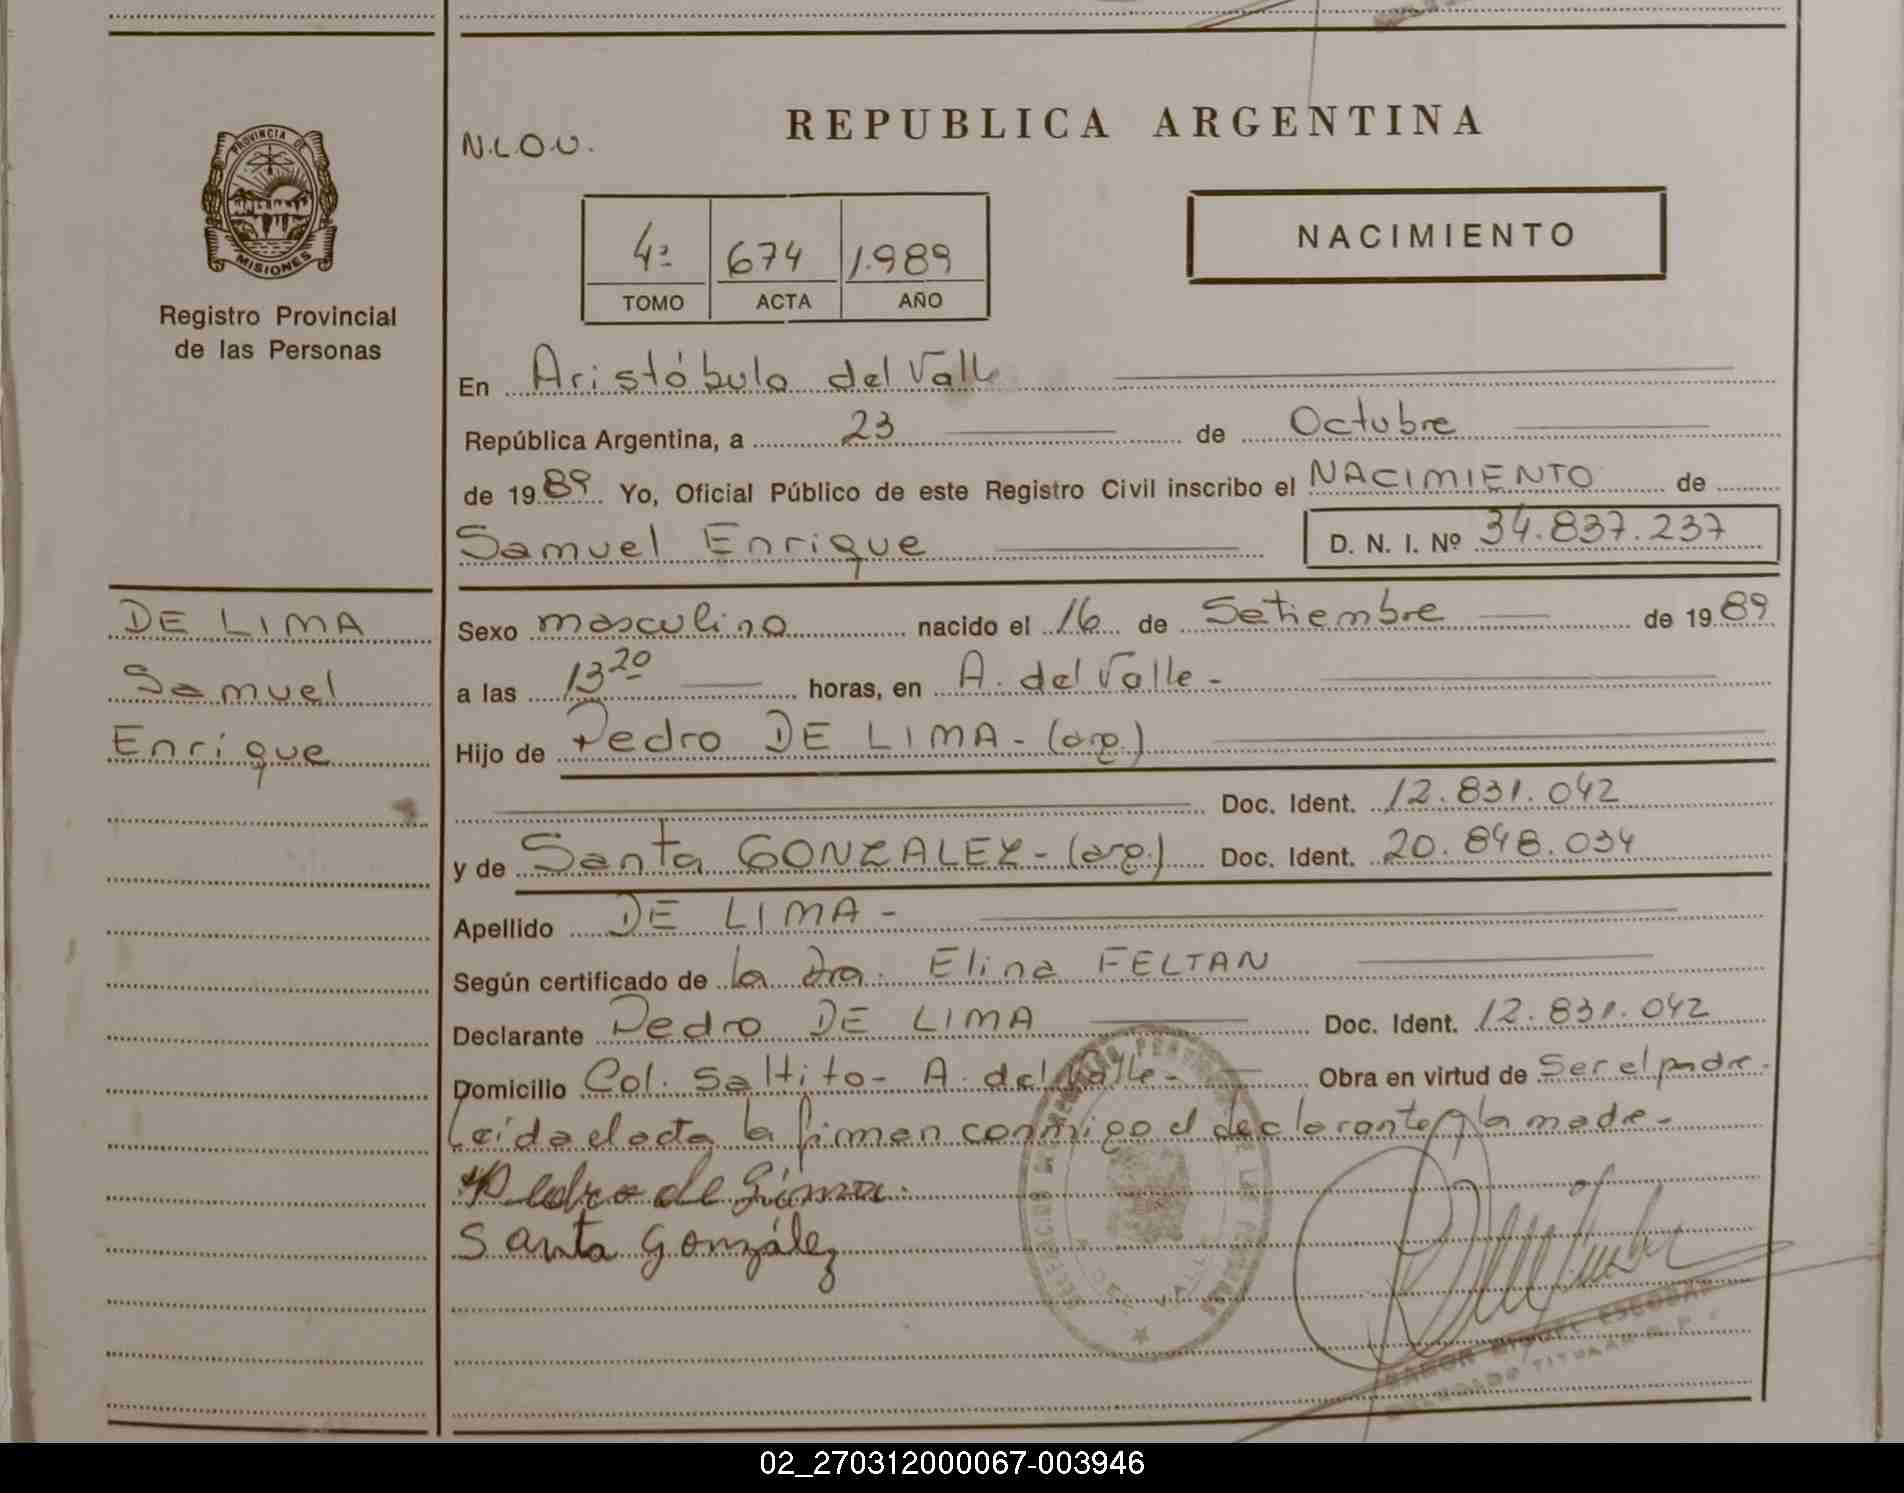 PROVINCIA DE
MISIONES
Registro Provincial
de las Personas
DE LIMA
Samuel
Enrique
N.L.O.U.
REPUBLICA ARGENTINA
4ª 674 1.989
TOMO ACTA AÑO
NACIMIENTO
En Aristóbulo del Valle
República Argentina, a 23 de Octubre
de 1989 Yo, Oficial Público de este Registro Civil inscribo el NACIMIENTO de
Samuel Enrique D. N. I. Nº 34.837.237
Sexo masculino nacido el 16 de Setiembre de 1989
a las 13 20 horas, en A. del Valle -
Hijo de Pedro DE LIMA - (arg.)
Doc. Ident. 12.831.042
y de Santa GONZALEZ - (arg.) Doc. Ident. 20.848.034
Apellido DE LIMA -
Según certificado de la Dra. Elina FELTAN
Declarante Pedro DE LIMA Doc. Ident. 12.831.042
Domicilio Col. Saltito - A. del Valle - Obra en virtud de Ser el padre -
Leída el acta la firman conmigo el declarante y la madre -
Pedro de Lima.
Santa González
RAMON MIGUEL ESCOBAR
02_270312000067-003946